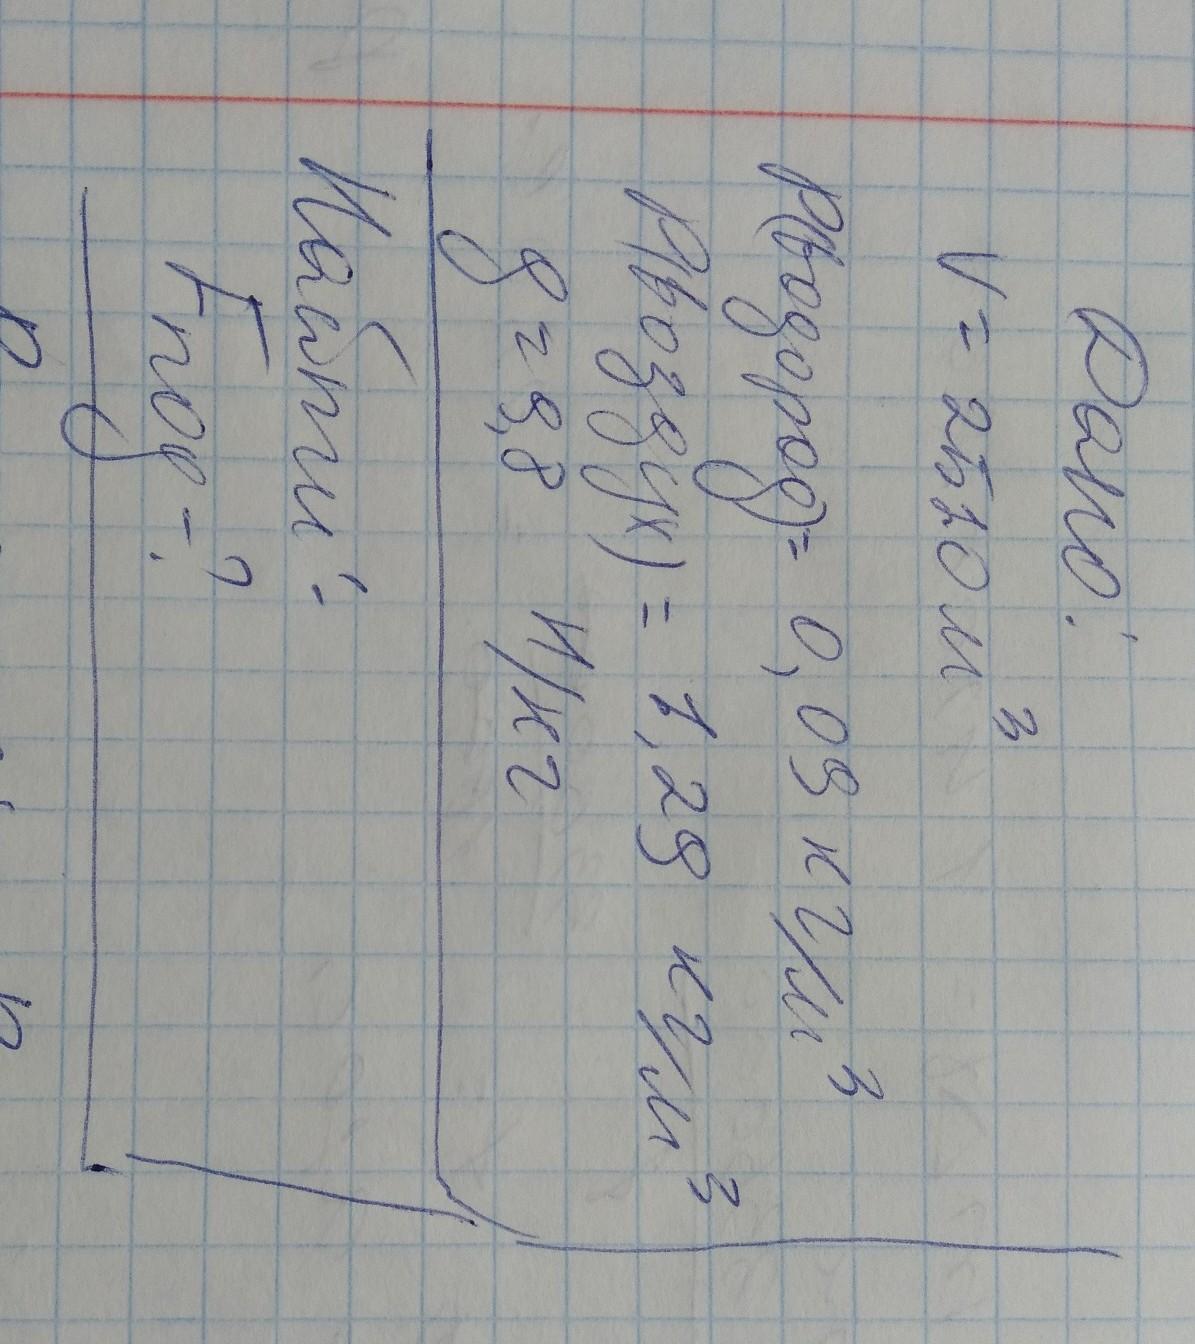 Дано:
V = 2520 м³
ρ(водород) = 0,09 кг/м³
ρ(воздух) = 1,29 кг/м³
g = 9,8 Н/кг
Найти:
Fпод - ?